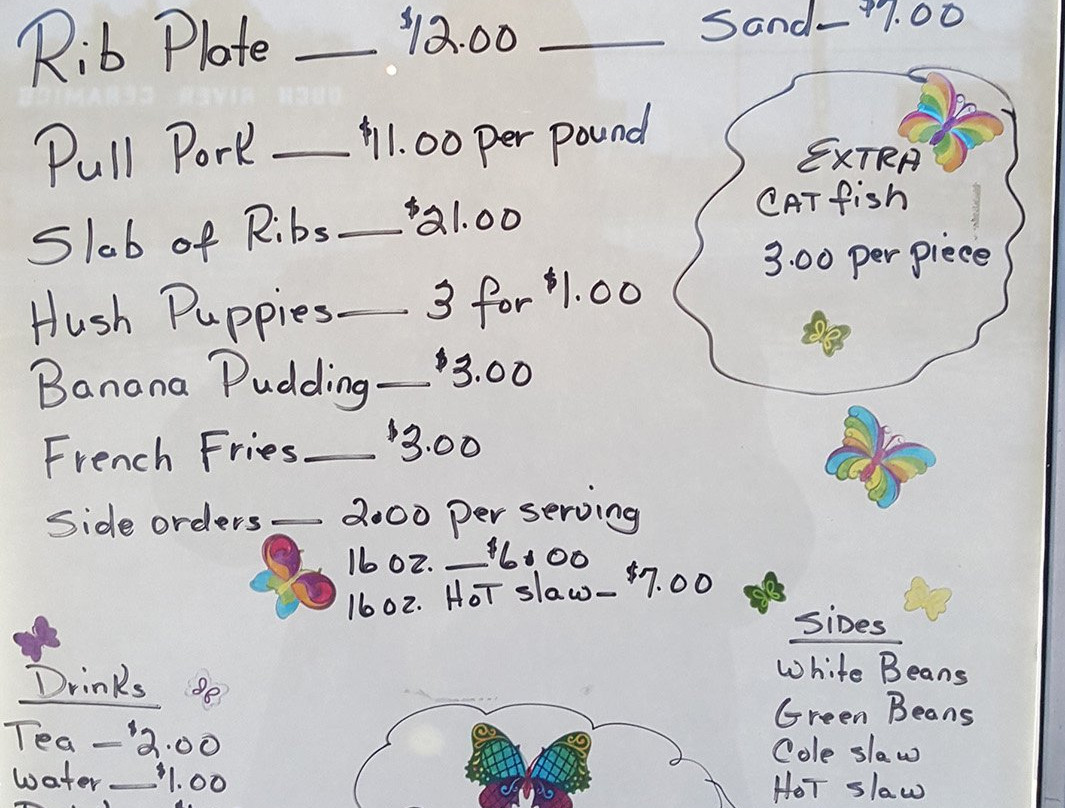 Rib Plate — $12.00 — Sand— $7.00
Pull Pork — $11.00 per pound
Slab of Ribs — $21.00
Hush Puppies — 3 for $1.00
Banana Pudding — $3.00
French Fries — $3.00
Side orders — 2.00 per serving
16 oz. — $6.00
16 oz. HoT slaw — $7.00
EXTRA
CATfish
3.00 per piece
Drinks
Tea — $2.00
water — $1.00
SiDes
White Beans
Green Beans
Cole slaw
HoT slaw